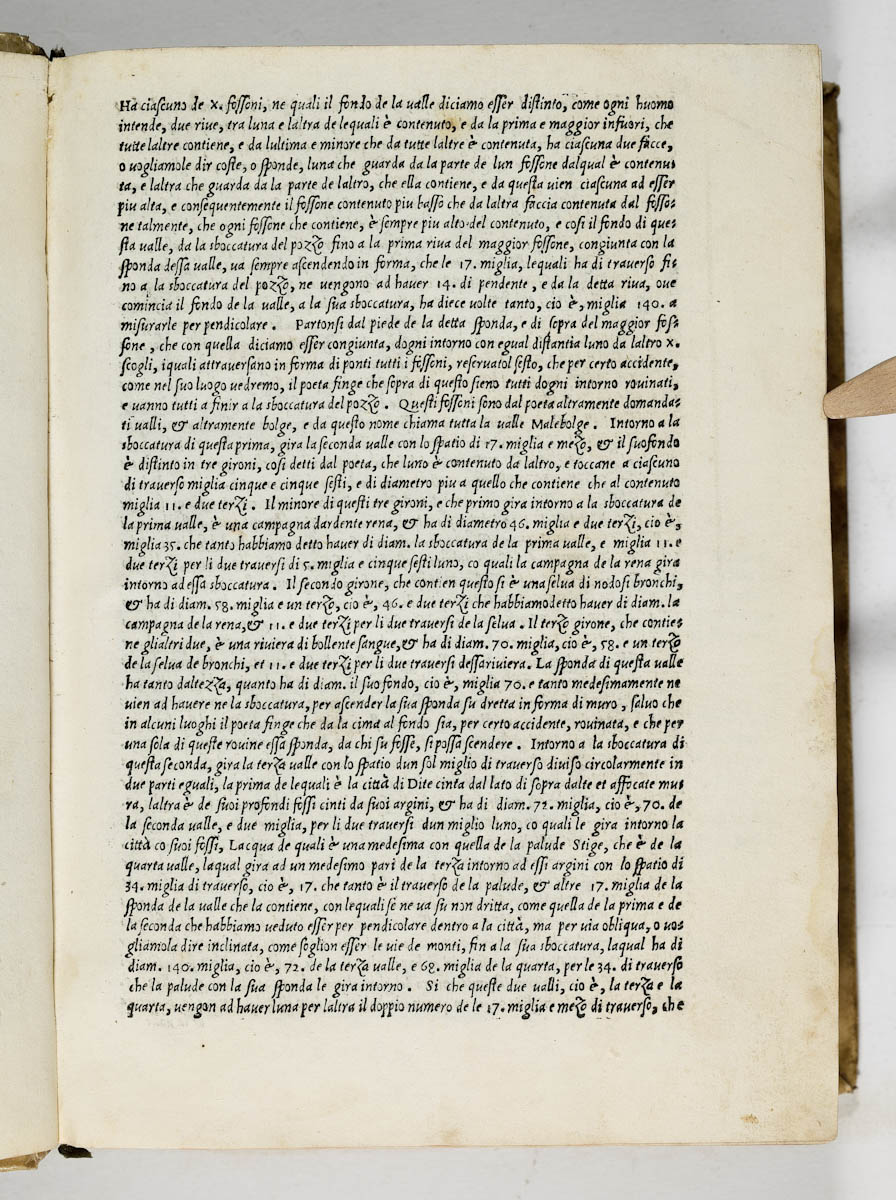 Ha ciascuno de x. fossoni, ne quali il fondo de la ualle diciamo esser distinto, come ogni huomo
intende, due riue, tra luna e laltra de lequali è contenuto, e da la prima e maggior infuori, che
tutte laltre contiene, e da lultima e minore che da tutte laltre è contenuta, ha ciascuna due facce,
o uogliamole dir coste, o sponde, luna che guarda da la parte de lun fossone dalqual è contenu-
ta, e laltra che guarda da la parte de laltro, che ella contiene, e da questa uien ciascuna ad esser
piu alta, e consequentemente il fossone contenuto piu basso che da laltra faccia contenuta dal fosso-
ne talmente, che ogni fossone che contiene, è sempre piu alto del contenuto, e cosi il fondo di que-
sta ualle, da la sboccatura del pozzo fino a la prima riua del maggior fossone, congiunta con la
sponda dessa ualle, ua sempre ascendendo in forma, che le 17. miglia, lequali ha di trauerso fi-
no a la sboccatura del pozzo, ne uengono ad hauer 14. di pendente, e da la detta riua, oue
comincia il fondo de la ualle, a la sua sboccatura, ha diece uolte tanto, cio è, miglia 140. a
misurarle per pendicolare. Partonsi dal piede de la detta sponda, e di sopra del maggior fos-
sone, che con quella diciamo esser congiunta, dogni intorno con egual distantia luno da laltro x.
scogli, iquali attrauersano in forma di ponti tutti i fossoni, reseruatol sesto, che per certo accidente,
come nel suo luogo uedremo, il poeta finge che sopra di questo sieno tutti dogni intorno rouinati,
e uanno tutti a finir a la sboccatura del pozzo. Questi fossoni sono dal poeta altramente domanda-
ti ualli, & altramente bolge, e da questo nome chiama tutta la ualle Malebolge. Intorno a la
sboccatura di questa prima, gira la seconda ualle con lo spatio di 17. miglia e mezo, & il suo fondo
è distinto in tre gironi, cosi detti dal poeta, che luno è contenuto da laltro, e toccane a ciascuno
di trauerso miglia cinque e cinque sesti, e di diametro piu a quello che contiene che al contenuto
miglia 11. e due terzi. Il minore di questi tre gironi, e che primo gira intorno a la sboccatura de
la prima ualle, è una campagna dardente rena, & ha di diametro 46. miglia e due terzi, cio è,
miglia 35. che tanto habbiamo detto hauer di diam. la sboccatura de la prima ualle, e miglia 11. e
due terzi per li due trauersi di 5. miglia e cinque sesti luno, co quali la campagna de la rena gira
intorno ad essa sboccatura. Il secondo girone, che contien questo si è una selua di nodosi bronchi,
& ha di diam. 58. miglia e un terzo, cio è, 46. e due terzi che habbiamo detto hauer di diam. la
campagna de la rena, & 11. e due terzi per li due trauersi de la selua. Il terzo girone, che contie-
ne glialtri due, è una riuiera di bollente sangue, & ha di diam. 70. miglia, cio è, 58. e un terzo
de la selua de bronchi, et 11. e due terzi per li due trauersi dessa riuiera. La sponda di questa ualle
ha tanto daltezza, quanto ha di diam. il suo fondo, cio è, miglia 70. e tanto medesimamente ne
uien ad hauere ne la sboccatura, per ascender la sua sponda su dretta in forma di muro, saluo che
in alcuni luoghi il poeta finge che da la cima al fondo sia, per certo accidente, rouinata, e che per
una sola di queste rouine essa sponda, da chi su fosse, si possa scendere. Intorno a la sboccatura di
questa seconda, gira la terza ualle con lo spatio dun sol miglio di trauerso diuiso circolarmente in
due parti eguali, la prima de lequali è la città di Dite cinta dal lato di sopra dalte et affocate mu-
ra, laltra è de suoi profondi fossi cinti da suoi argini, & ha di diam. 72. miglia, cio è, 70. de
la seconda ualle, e due miglia, per li due trauersi dun miglio luno, co quali le gira intorno la
città co suoi fossi, Lacqua de quali è una medesima con quella de la palude Stige, che è de la
quarta ualle, laqual gira ad un medesimo pari de la terza intorno ad essi argini con lo spatio di
34. miglia di trauerso, cio è, 17. che tanto è il trauerso de la palude, & altre 17. miglia de la
sponda de la ualle che la contiene, con lequali se ne ua su non dritta, come quella de la prima e de
la seconda che habbiamo ueduto esser per pendicolare dentro a la città, ma per uia obliqua, o uo-
gliamola dire inclinata, come soglion esser le uie de monti, fin a la sua sboccatura, laqual ha di
diam. 140. miglia, cio è, 72. de la terza ualle, e 68. miglia de la quarta, per le 34. di trauerso
che la palude con la sua sponda le gira intorno. Si che queste due ualli, cio è, la terza e la
quarta, uengon ad hauer luna per laltra il doppio numero de le 17. miglia e mezo di trauerso, che